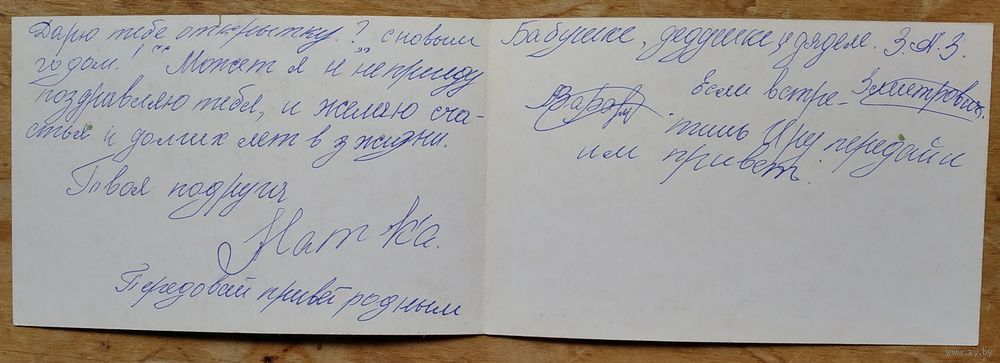 Дарю тебе открытку? с новым
годом!"" Может я и не приеду
поздравляю тебя, и желаю сча-
стья и долгих лет в жизни.
Твоя подруга
Натка.
Передовай привет родным
Бабушке, дедушке и дяделе. З.А.З.
Если встре-
тишь Иру передай и
им привет.
www.ay.by